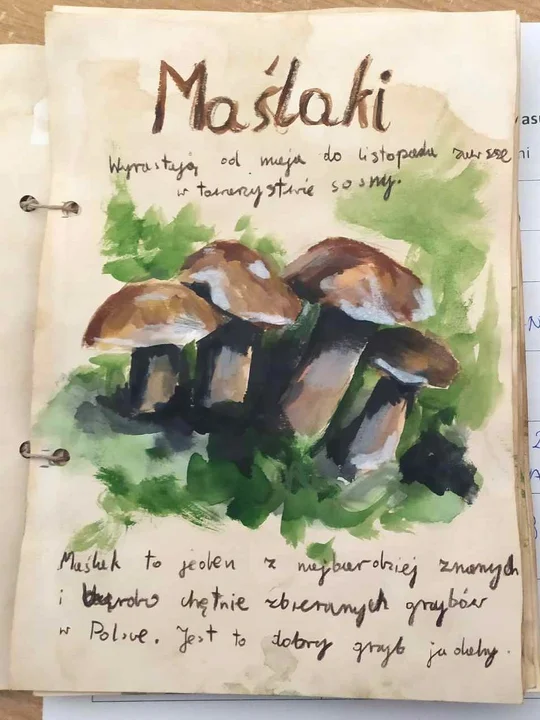 Maślaki
Wyrastają od maja do listopada zawsze
w towarzystwie sosny.
Maślak to jeden z najbardziej znanych
i bardzo chętnie zbieranych grzybów
w Polsce. Jest to dobry grzyb jadalny.